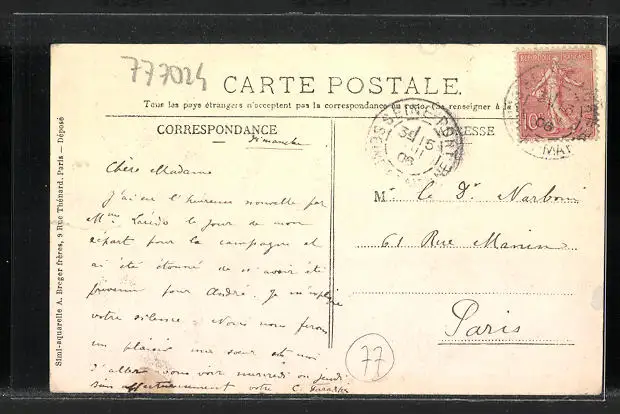 777024
CARTE POSTALE.
Tous les pays étrangers n'acceptent pas la correspondance au recto. (Se renseigner à la
CORRESPONDANCE
RESSE
Dimanche
Chère Madame
J'ai eu l'heureuse nouvelle par
Mme le jour de mon
départ pour la campagne et
ai été étonné de n'avoir été
prévenu pour André. Je m'explique
votre silence. Nous nous ferons
un plaisir ma sœur et moi
d'aller vous voir mercredi ou jeudi.
bien affectueusement votre C.
M. le Dr Narboni
61 Rue Manin
Paris
77
REPUBLIQUE FRANÇAISE
10
SEINE-PORT
15
06
Simi-aquarelle A. Breger frères, 9 Rue Thénard, Paris — Déposé